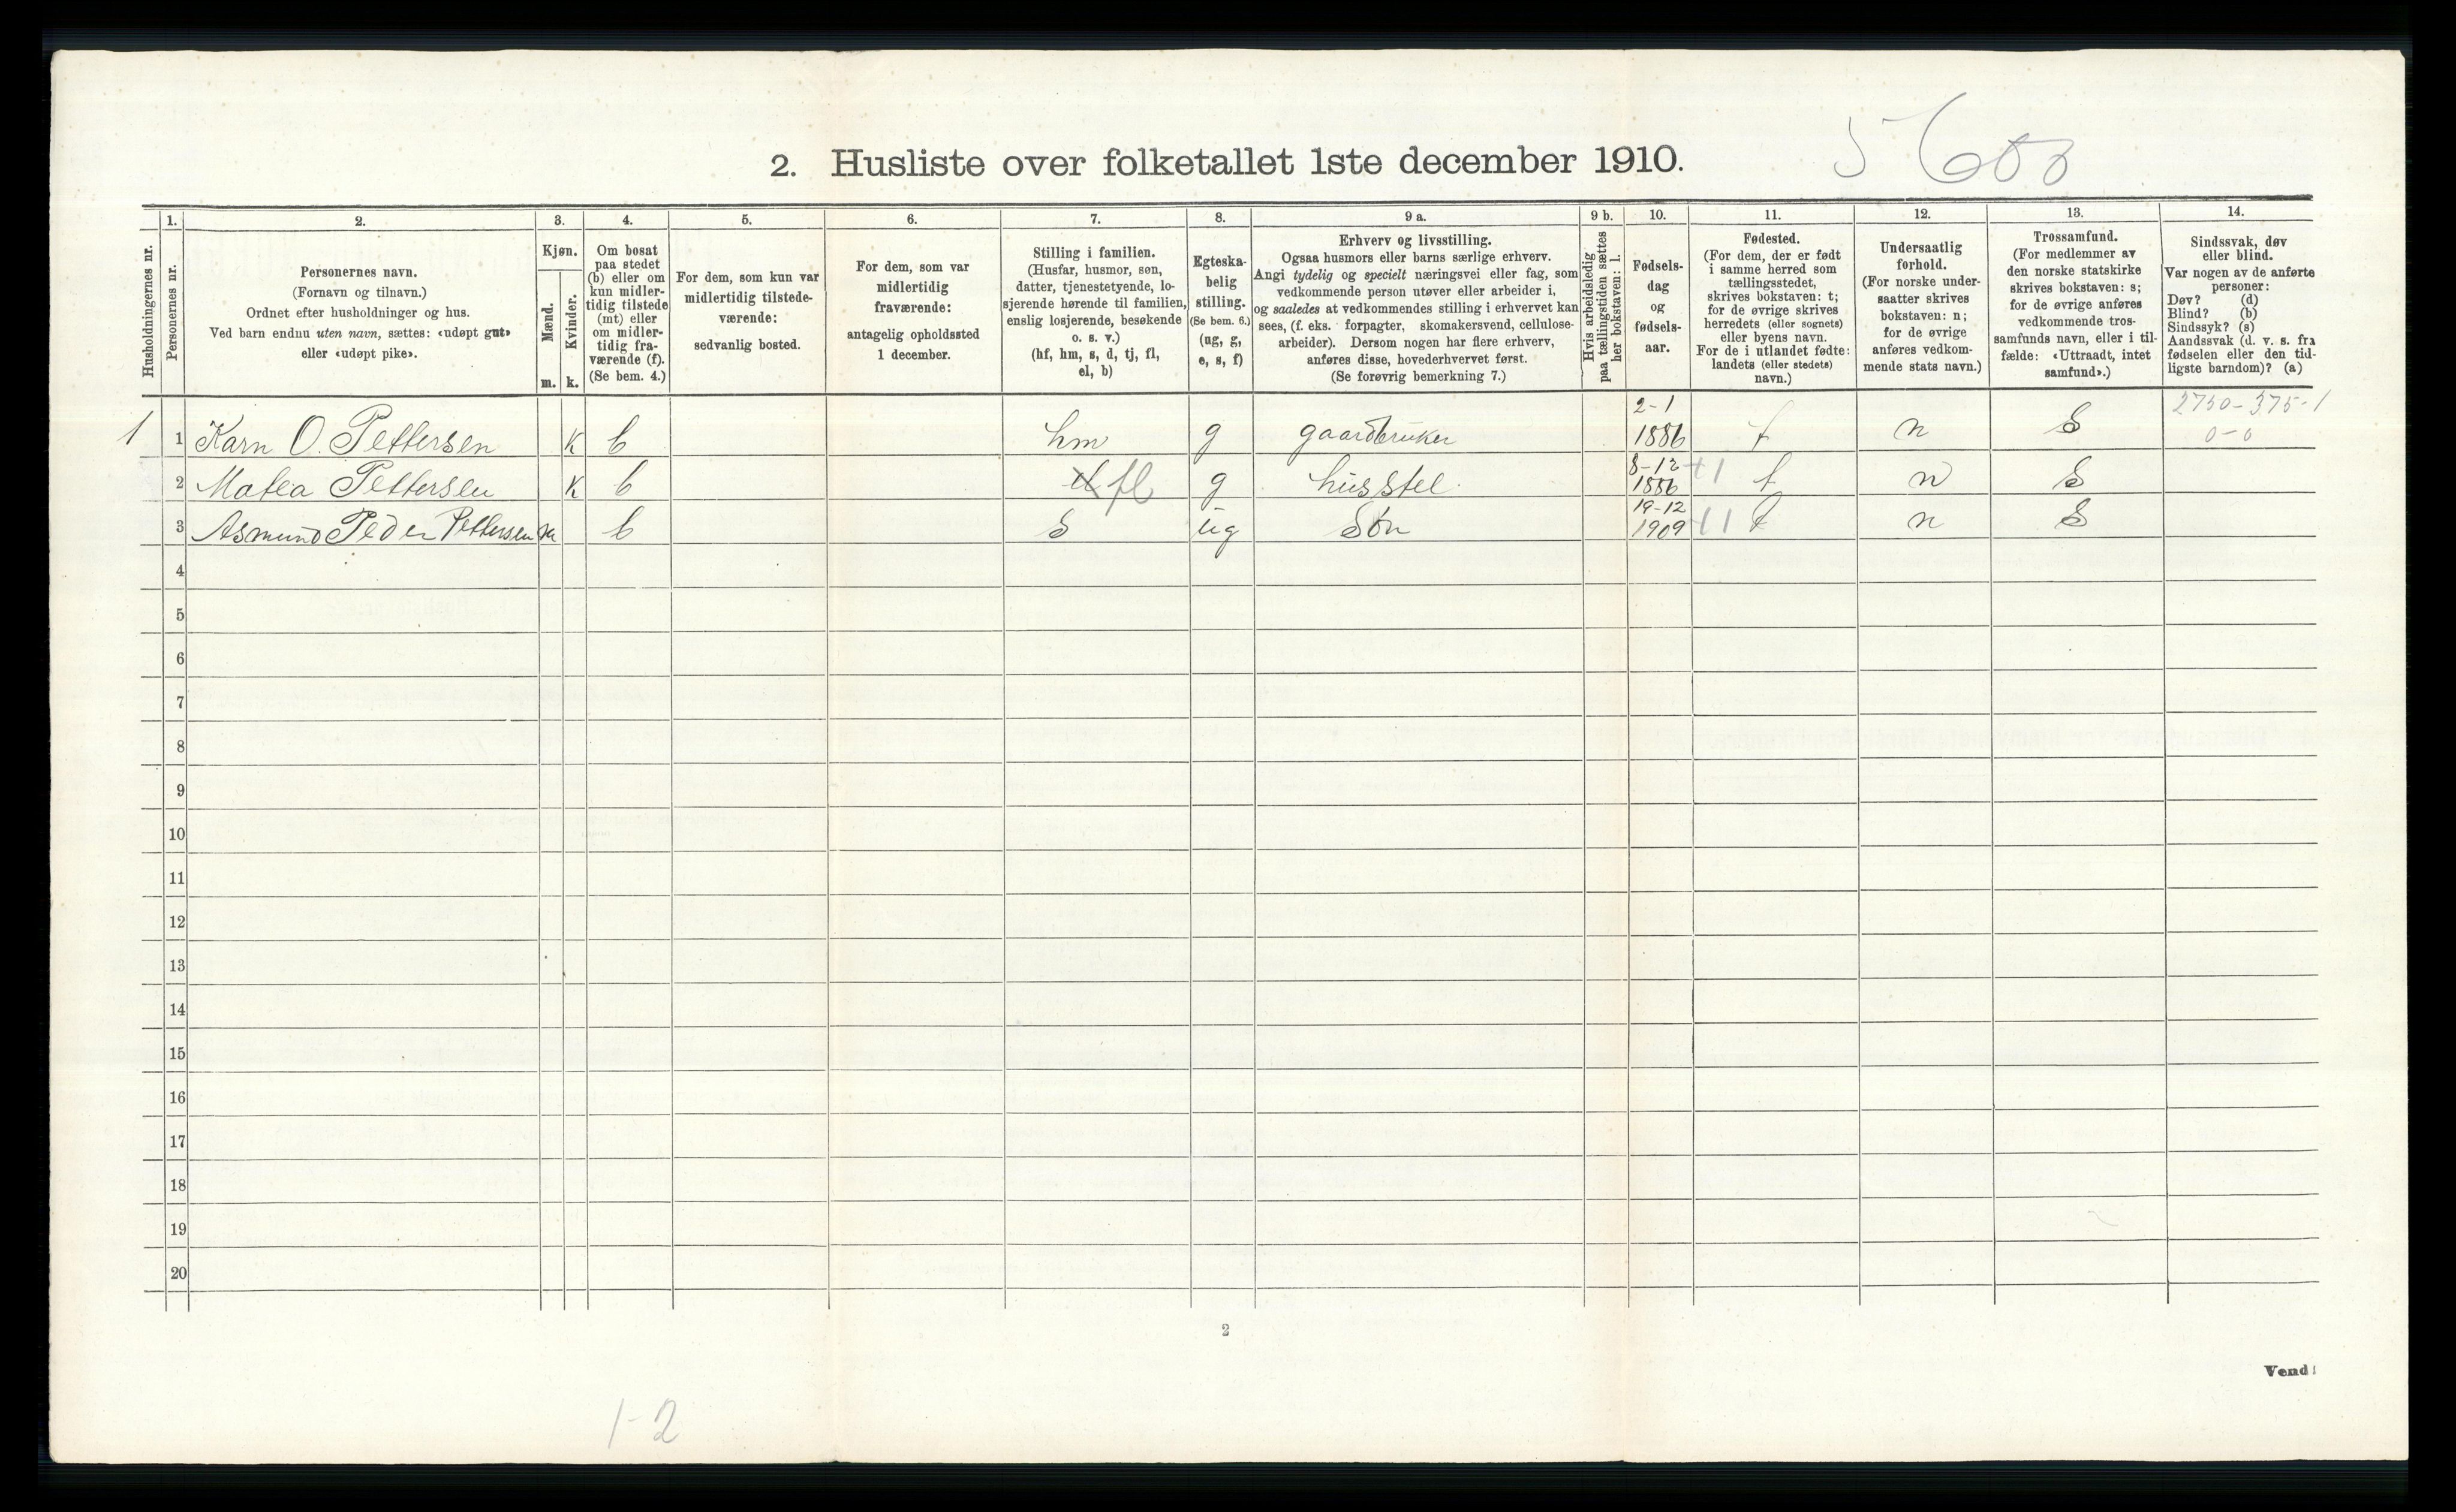 2. Husliste over folketallet 1ste december 1910.
Husholdningernes nr.
1.
Personernes nr.
2.
Personernes navn.
(Fornavn og tilnavn.)
Ordnet efter husholdninger og hus.
Ved barn endnu uten navn, sættes: «udøpt gut»
eller «udøpt pike».
3.
Kjøn.
Mænd.
Kvinder.
m. k.
4.
Om bosat
paa stedet
(b) eller om
kun midler-
tidig tilstede
(mt) eller
om midler-
tidig fra-
værende (f).
(Se bem. 4.)
5.
For dem, som kun var
midlertidig tilstede-
værende:
sedvanlig bosted.
6.
For dem, som var
midlertidig
fraværende:
antagelig opholdssted
1 december.
7.
Stilling i familien.
(Husfar, husmor, søn,
datter, tjenestetyende, lo-
sjerende hørende til familien,
enslig losjerende, besøkende
o. s. v.)
(hf, hm, s, d, tj, fl,
el, b)
8.
Egteska-
belig
stilling.
(Se bem. 6.)
(ug, g,
e, s, f)
9 a.
Erhverv og livsstilling.
Ogsaa husmors eller barns særlige erhverv.
Angi tydelig og specielt næringsvei eller fag, som
vedkommende person utøver eller arbeider i,
og saaledes at vedkommendes stilling i erhvervet kan
sees, (f. eks. forpagter, skomakersvend, cellulose-
arbeider). Dersom nogen har flere erhverv,
anføres disse, hovederhvervet først.
(Se forøvrig bemerkning 7.)
9 b.
Hvis arbeidsledig
paa tællingstiden sættes
her bokstaven: l.
10.
Fødsels-
dag
og
fødsels-
aar.
11.
Fødested.
(For dem, der er født
i samme herred som
tællingsstedet,
skrives bokstaven: t;
for de øvrige skrives
herredets (eller sognets)
eller byens navn.
For de i utlandet fødte:
landets (eller stedets)
navn.)
12.
Undersaatlig
forhold.
(For norske under-
saatter skrives
bokstaven: n;
for de øvrige
anføres vedkom-
mende stats navn.)
13.
Trossamfund.
(For medlemmer av
den norske statskirke
skrives bokstaven: s;
for de øvrige anføres
vedkommende tros-
samfunds navn, eller i til-
fælde: «Uttraadt, intet
samfund».)
14.
Sindssvak, døv
eller blind.
Var nogen av de anførte
personer:
Døv? (d)
Blind? (b)
Sindssyk? (s)
Aandssvak (d. v. s. fra
fødselen eller den tid-
ligste barndom)? (a)
2-1 2750-375-1
1 1 Karn O. Pettersen K b hm g gaardbruker 1886 t n S 0-0
8-12
2 Matea Pettersen K b fl g husstel. 1886 +1 t n S
19-12
3 Asmund Peder Pettersen m b S ug Søn 1909 +1 t n S
4
5
6
7
8
9
10
11
12
13
14
15
16
17
18
19
20
2
Vend!
1-2